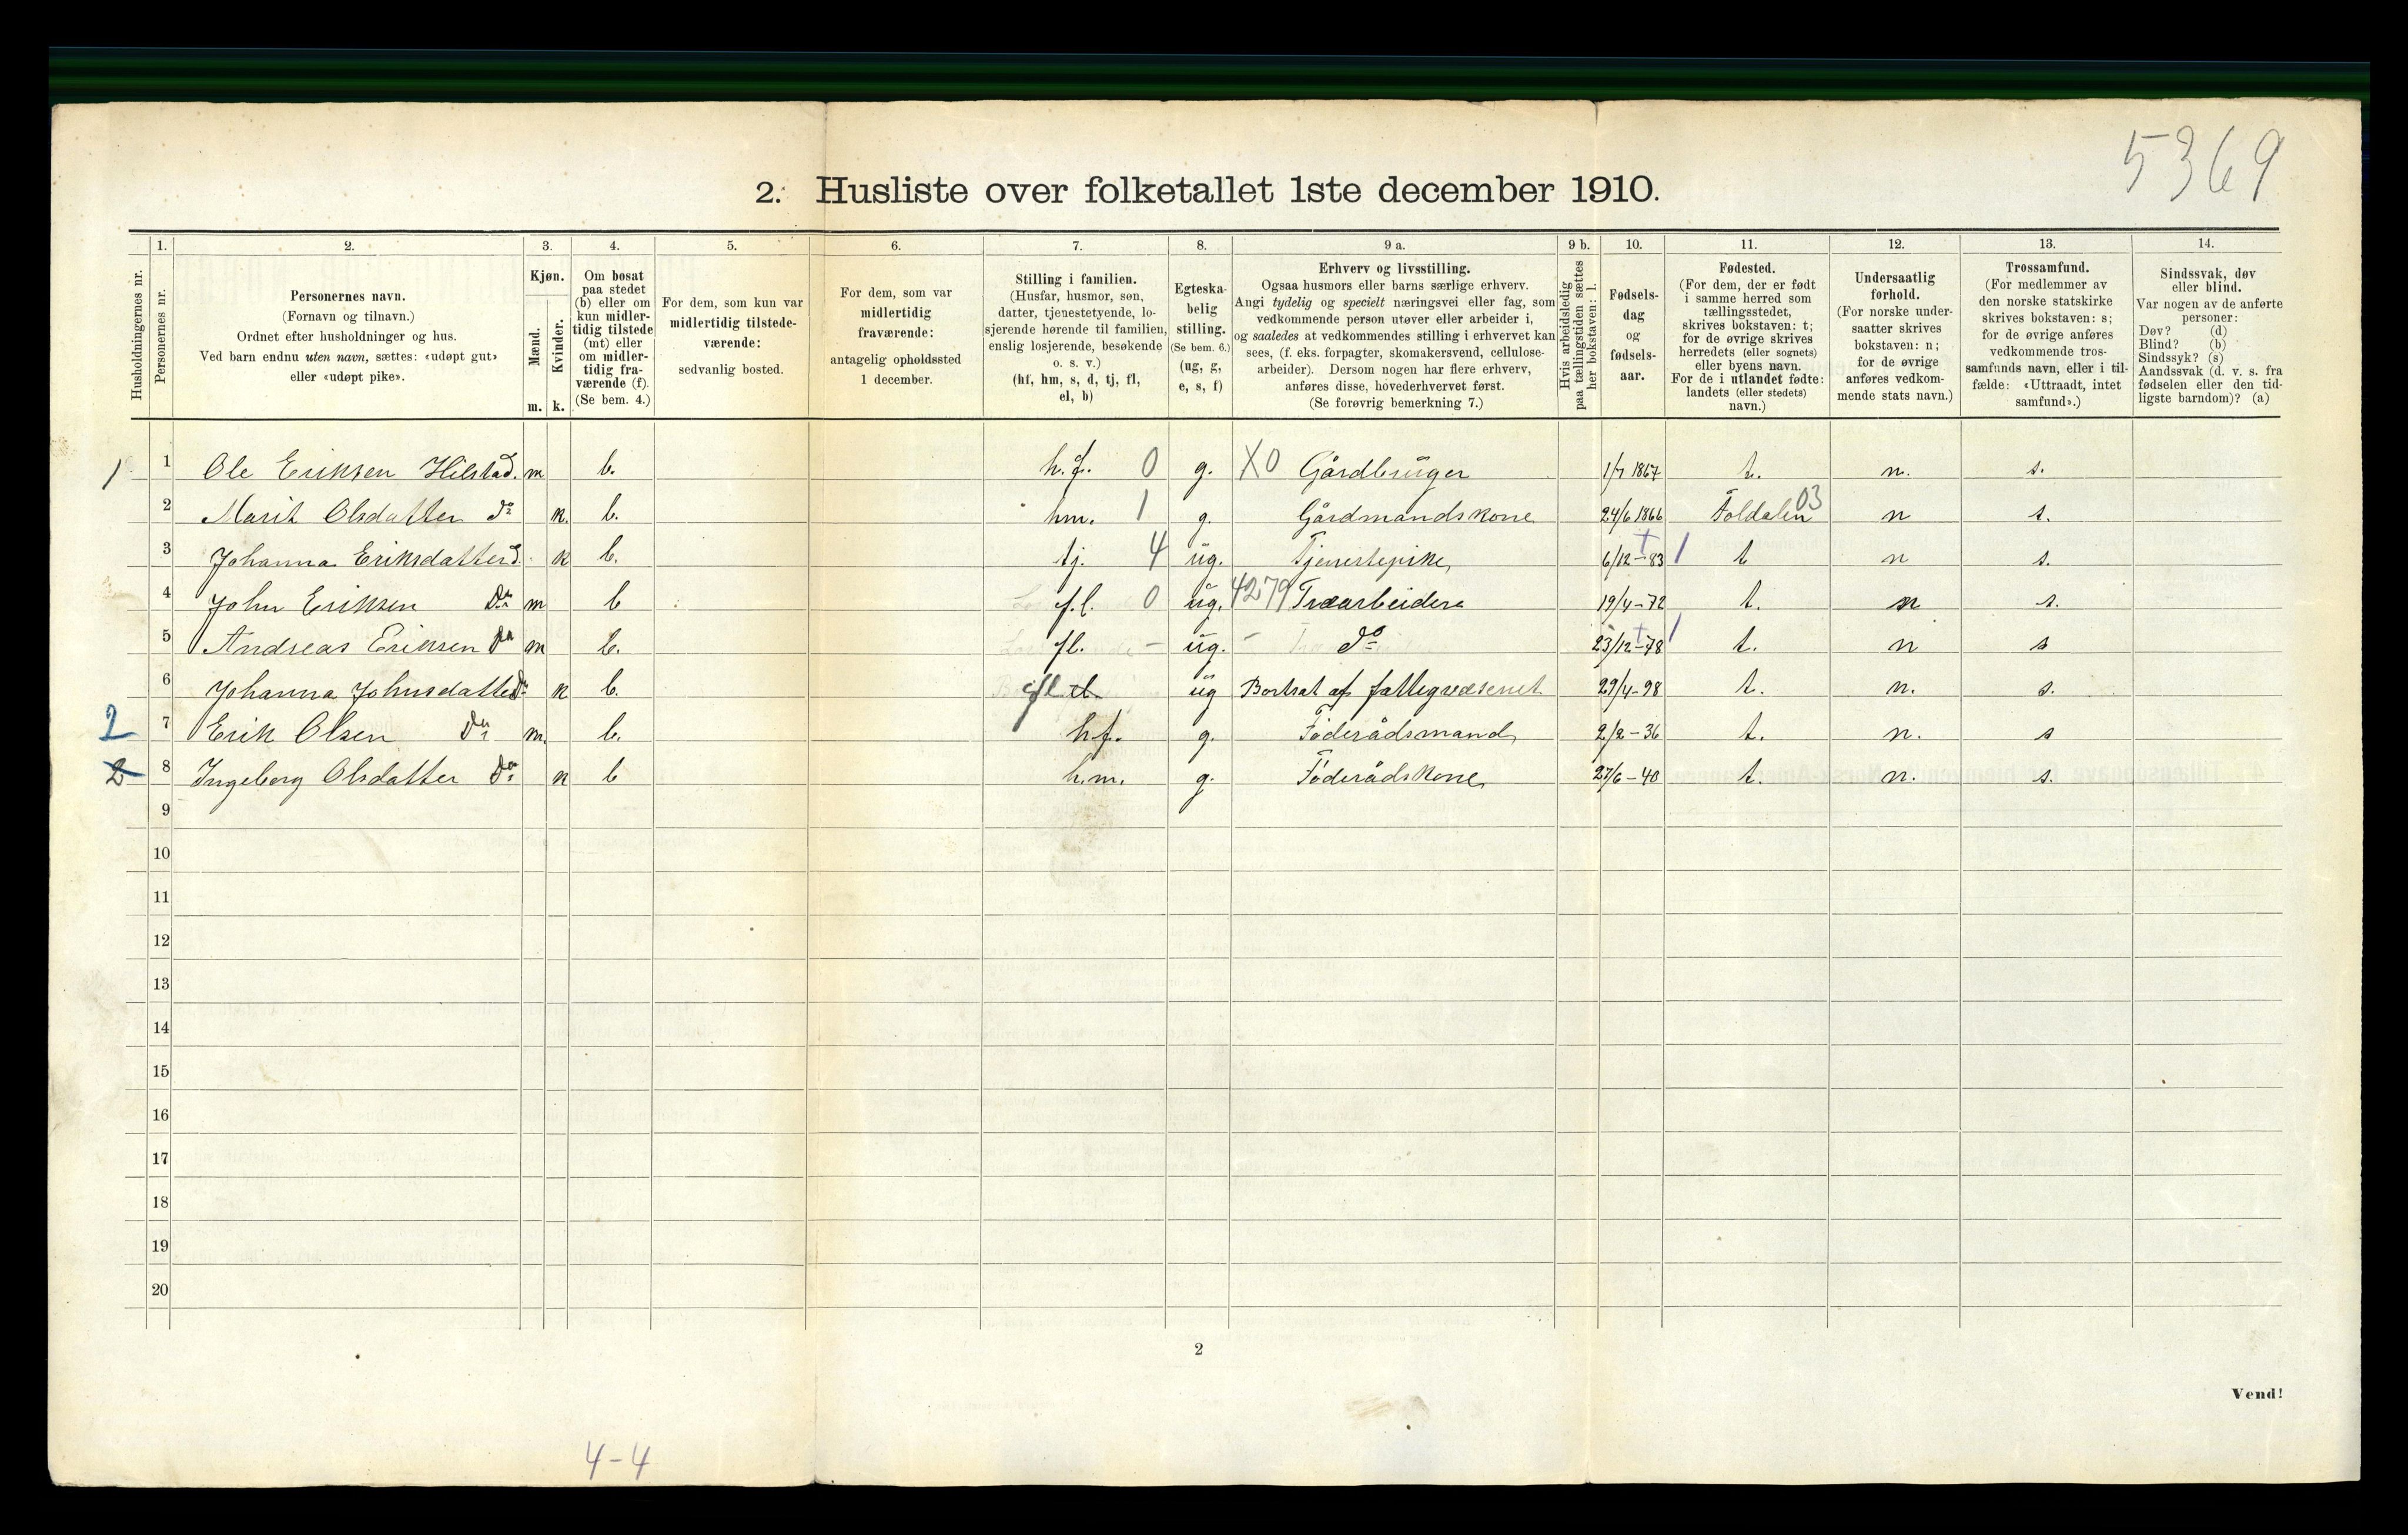 5369
2. Husliste over folketallet 1ste december 1910.
1. 2. 3. 4. 5. 6. 7. 8. 9 a. 9 b. 10. 11. 12. 13. 14.
Husholdningernes nr.
Personernes nr.
Personernes navn.
(Fornavn og tilnavn.)
Ordnet efter husholdninger og hus.
Ved barn endnu uten navn, sættes: «udøpt gut»
eller «udøpt pike».
Kjøn.
Mænd.
Kvinder.
m. k.
Om bosat
paa stedet
(b) eller om
kun midler-
tidig tilstede
(mt) eller
om midler-
tidig fra-
værende (f).
(Se bem. 4.)
For dem, som kun var
midlertidig tilstede-
værende:
sedvanlig bosted.
For dem, som var
midlertidig
fraværende:
antagelig opholdssted
1 december.
Stilling i familien.
(Husfar, husmor, søn,
datter, tjenestetyende, lo-
sjerende hørende til familien,
enslig losjerende, besøkende
o. s. v.)
(hf, hm, s, d, tj, fl,
el, b)
Egteska-
belig
stilling.
(Se bem. 6.)
(ug, g,
e, s, f)
Erhverv og livsstilling.
Ogsaa husmors eller barns særlige erhverv.
Angi tydelig og specielt næringsvei eller fag, som
vedkommende person utøver eller arbeider i,
og saaledes at vedkommendes stilling i erhvervet kan
sees, (f. eks. forpagter, skomakersvend, cellulose-
arbeider). Dersom nogen har flere erhverv,
anføres disse, hovederhvervet først.
(Se forøvrig bemerkning 7.)
Hvis arbeidsledig
paa tællingstiden sættes
her bokstaven: l.
Fødsels-
dag
og
fødsels-
aar.
Fødested.
(For dem, der er født
i samme herred som
tællingsstedet,
skrives bokstaven: t;
for de øvrige skrives
herredets (eller sognets)
eller byens navn.
For de i utlandet fødte:
landets (eller stedets)
navn.)
Undersaatlig
forhold.
(For norske under-
saatter skrives
bokstaven: n;
for de øvrige
anføres vedkom-
mende stats navn.)
Trossamfund.
(For medlemmer av
den norske statskirke
skrives bokstaven: s;
for de øvrige anføres
vedkommende tros-
samfunds navn, eller i til-
fælde: «Uttraadt, intet
samfund».)
Sindssvak, døv
eller blind.
Var nogen av de anførte
personer:
Døv? (d)
Blind? (b)
Sindssyk? (s)
Aandssvak (d. v. s. fra
fødselen eller den tid-
ligste barndom)? (a)
1 1 Ole Eriksen Hilstad. m b. h.f. 0 g. X0 Gårdbrüger 1/7 1867 t. n. s.
2 Marit Olsdatter do k. b. hm. 1 g. Gårdmandskone 24/6 1866 Foldalen 03 n s.
3 Johanna Eriksdatter d. k b. tj. 4 üg. Tjenestepike, 6/12-83 1 t n s.
4 John Eriksen Do m b f.l. 0 üg. 4279 Træarbeider 19/4-72 t. n s.
5 Andreas Eriksen Do m b. fl. - üg. - do 23/12-78 1 t. n s
6 Johanna Johnsdatter Do k b. fl üg Bortsat af fattigvæsenet 29/4-98 t. n. s.
2 7 Erik Olsen Do m. b. hf. g. Föderådsmand 2/2-36 t. n. s
2 8 Ingeborg Olsdatter Do k b h.m. g. Föderådskone 27/6-40 t. n. s.
9
10
11
12
13
14
15
16
17
18
19
20
2
Vend!
4-4